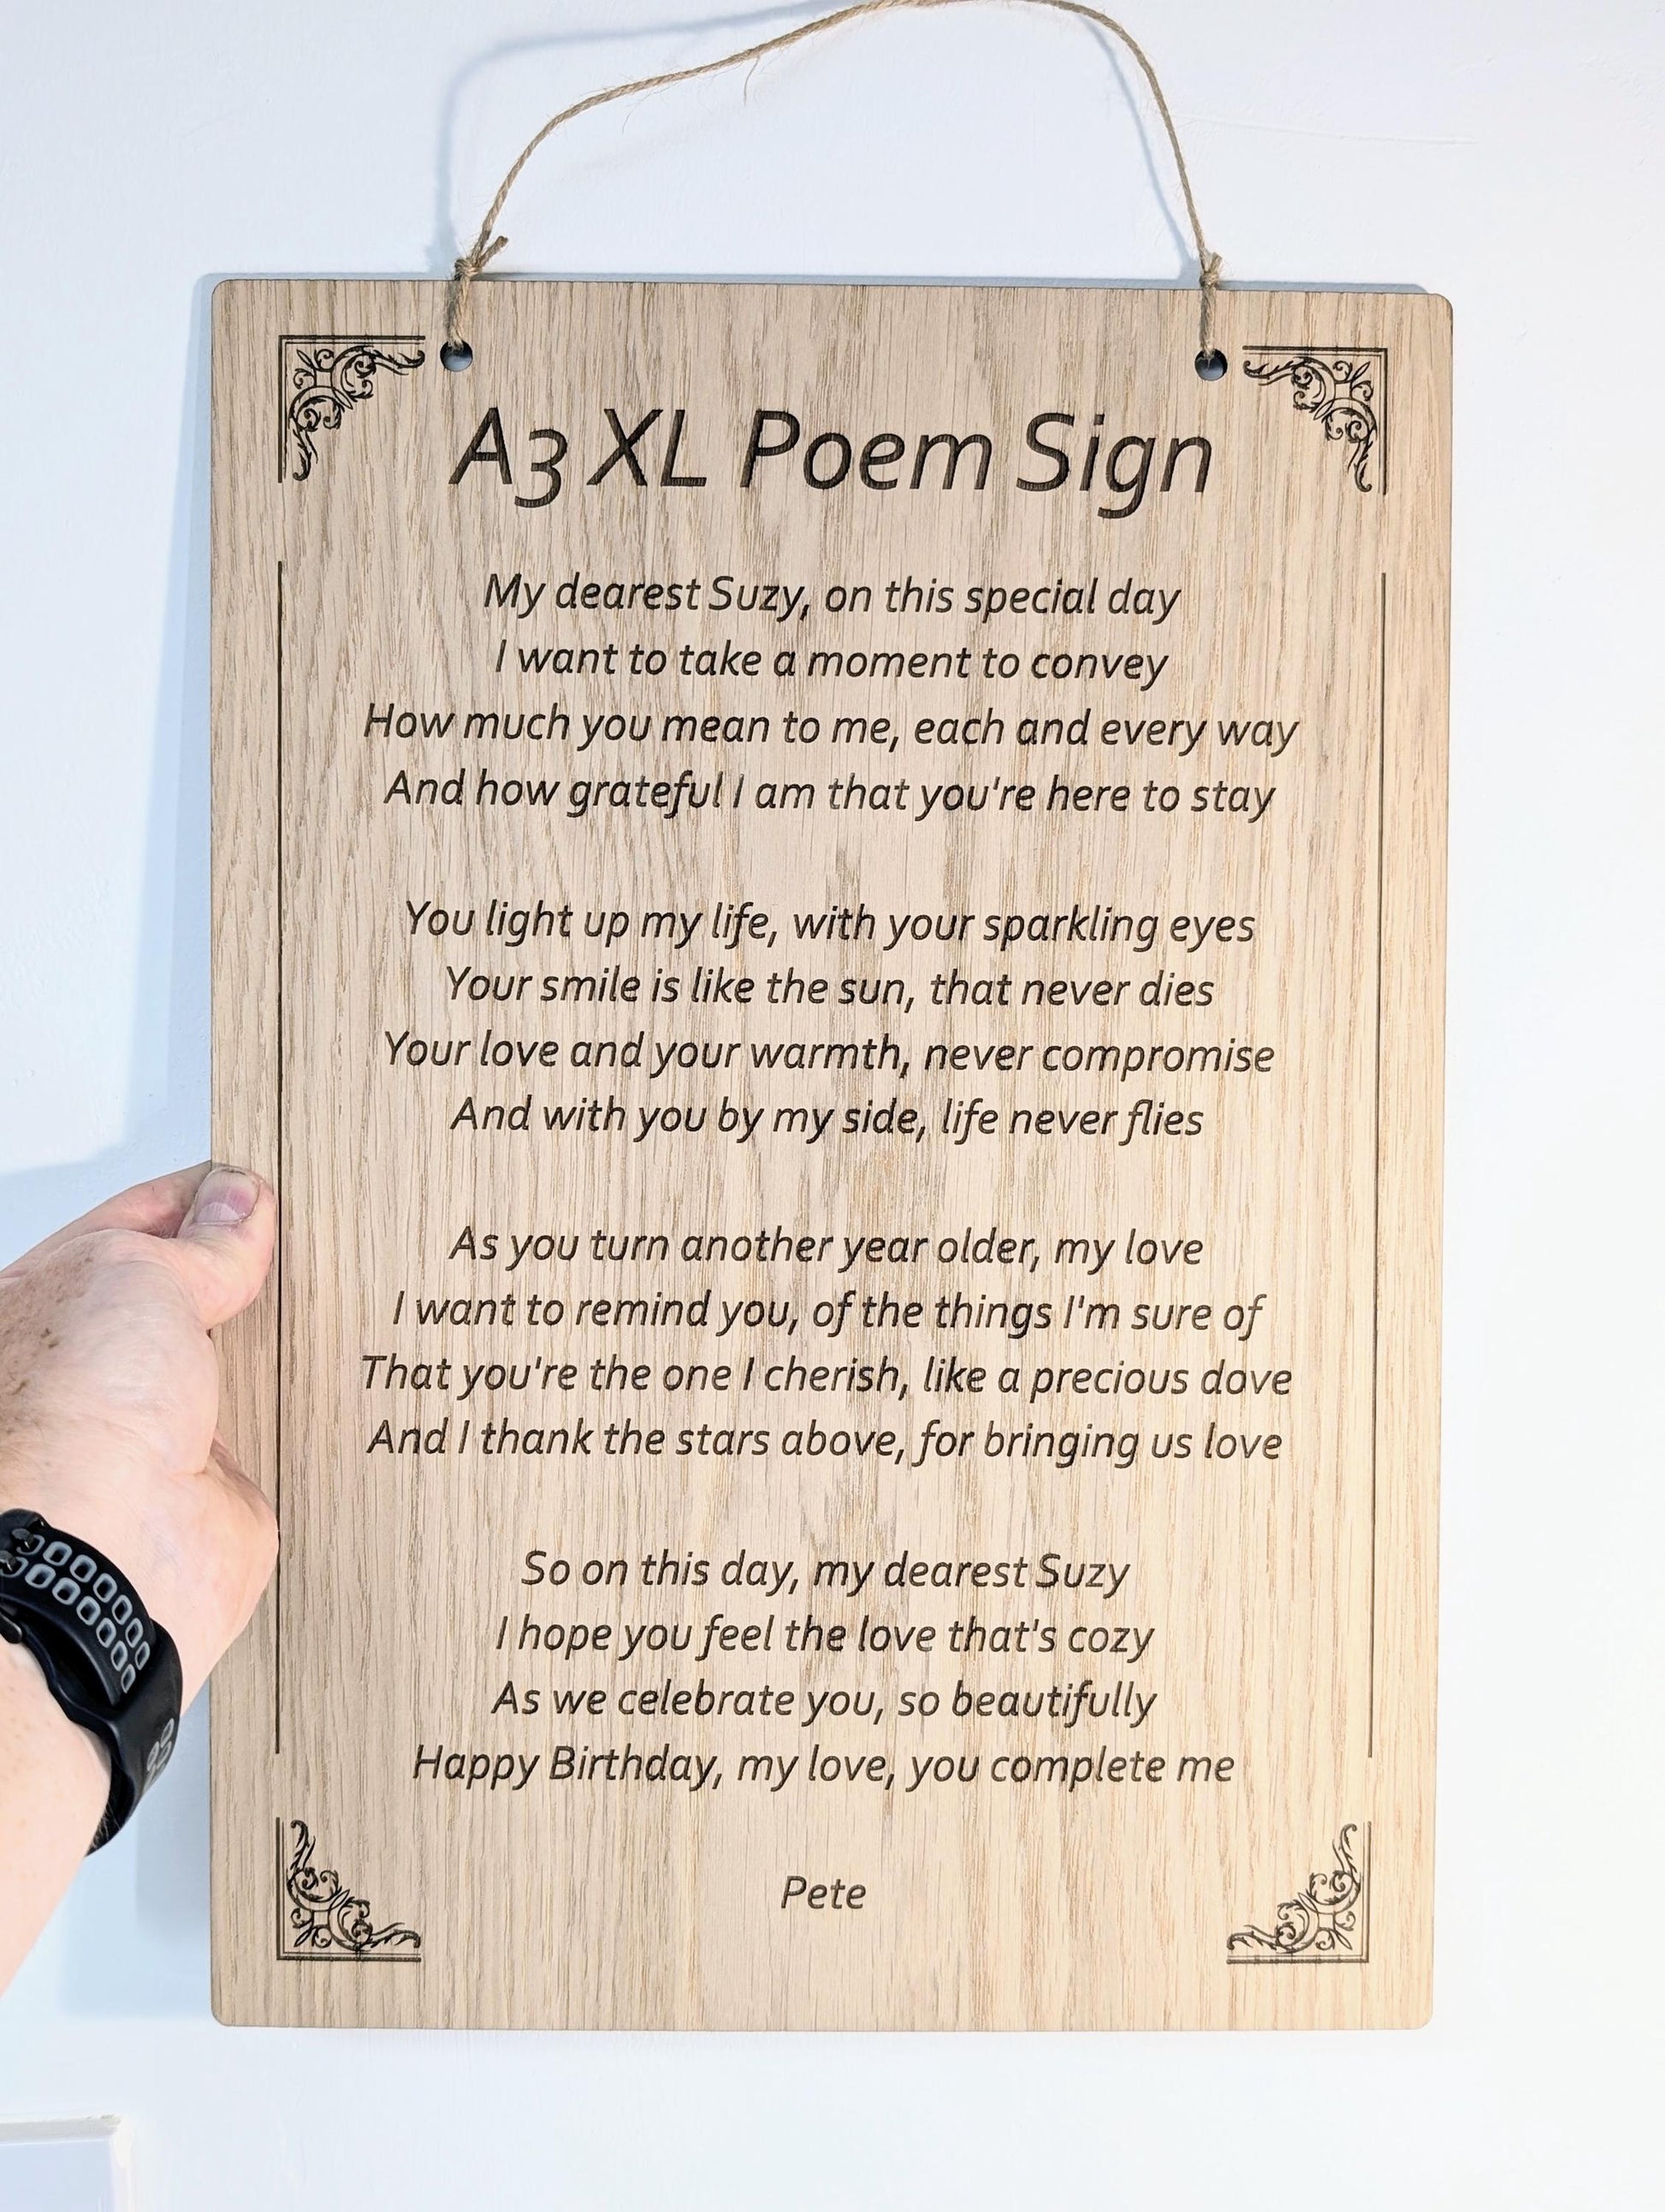 A3 XL Poem Sign
My dearest Suzy, on this special day
I want to take a moment to convey
How much you mean to me, each and every way
And how grateful I am that you're here to stay
You light up my life, with your sparkling eyes
Your smile is like the sun, that never dies
Your love and your warmth, never compromise
And with you by my side, life never flies
As you turn another year older, my love
I want to remind you, of the things I'm sure of
That you're the one I cherish, like a precious dove
And I thank the stars above, for bringing us love
So on this day, my dearest Suzy
I hope you feel the love that's cozy
As we celebrate you, so beautifully
Happy Birthday, my love, you complete me
Pete